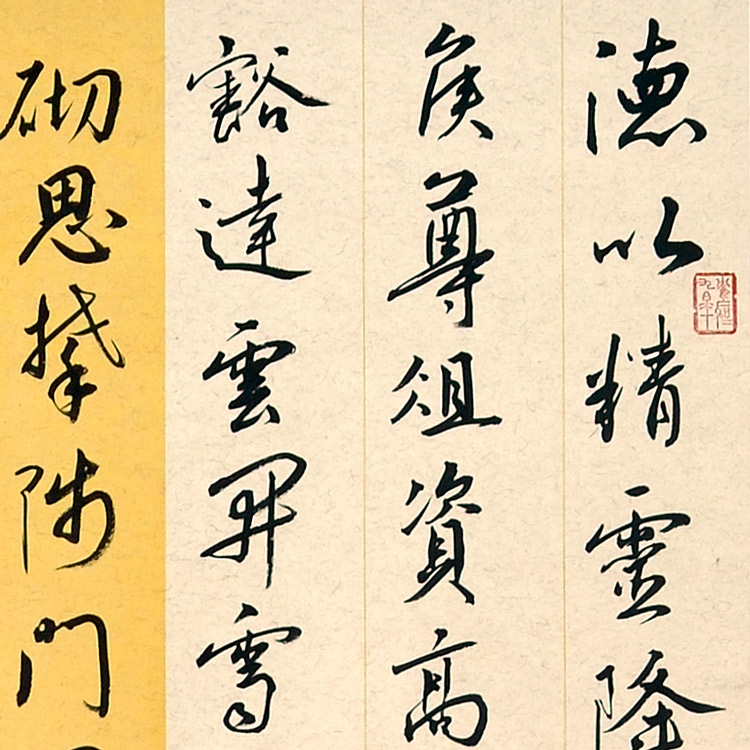 德以精靈降
侯尊俎資高
豁達雲開霽
砌思攀陟門